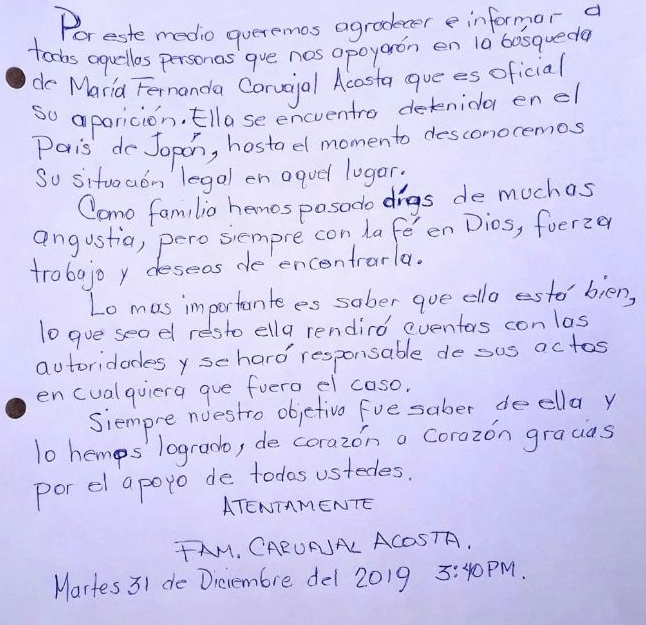 Por este medio queremos agradecer e informar a
todas aquellas personas que nos apoyarón en la búsqueda
de María Fernanda Carvajal Acosta que es oficial
su aparición. Ella se encuentra detenida en el
País de Japón, hasta el momento desconocemos
su situación legal en aquel lugar.
Como familia hemos pasado días de muchas
angustia, pero siempre con la fé en Dios, fuerza
trabajo y deseos de encontrarla.
Lo mas importante es saber que ella está bien,
lo que sea el resto ella rendirá cuentas con las
autoridades y se hará responsable de sus actos
en cualquiera que fuera el caso.
Siempre nuestro objetivo fue saber de ella y
lo hemos logrado, de corazón a corazón gracias
por el apoyo de todos ustedes.
ATENTAMENTE
FAM. CARVAJAL ACOSTA.
Martes 31 de Diciembre del 2019 3:40PM.